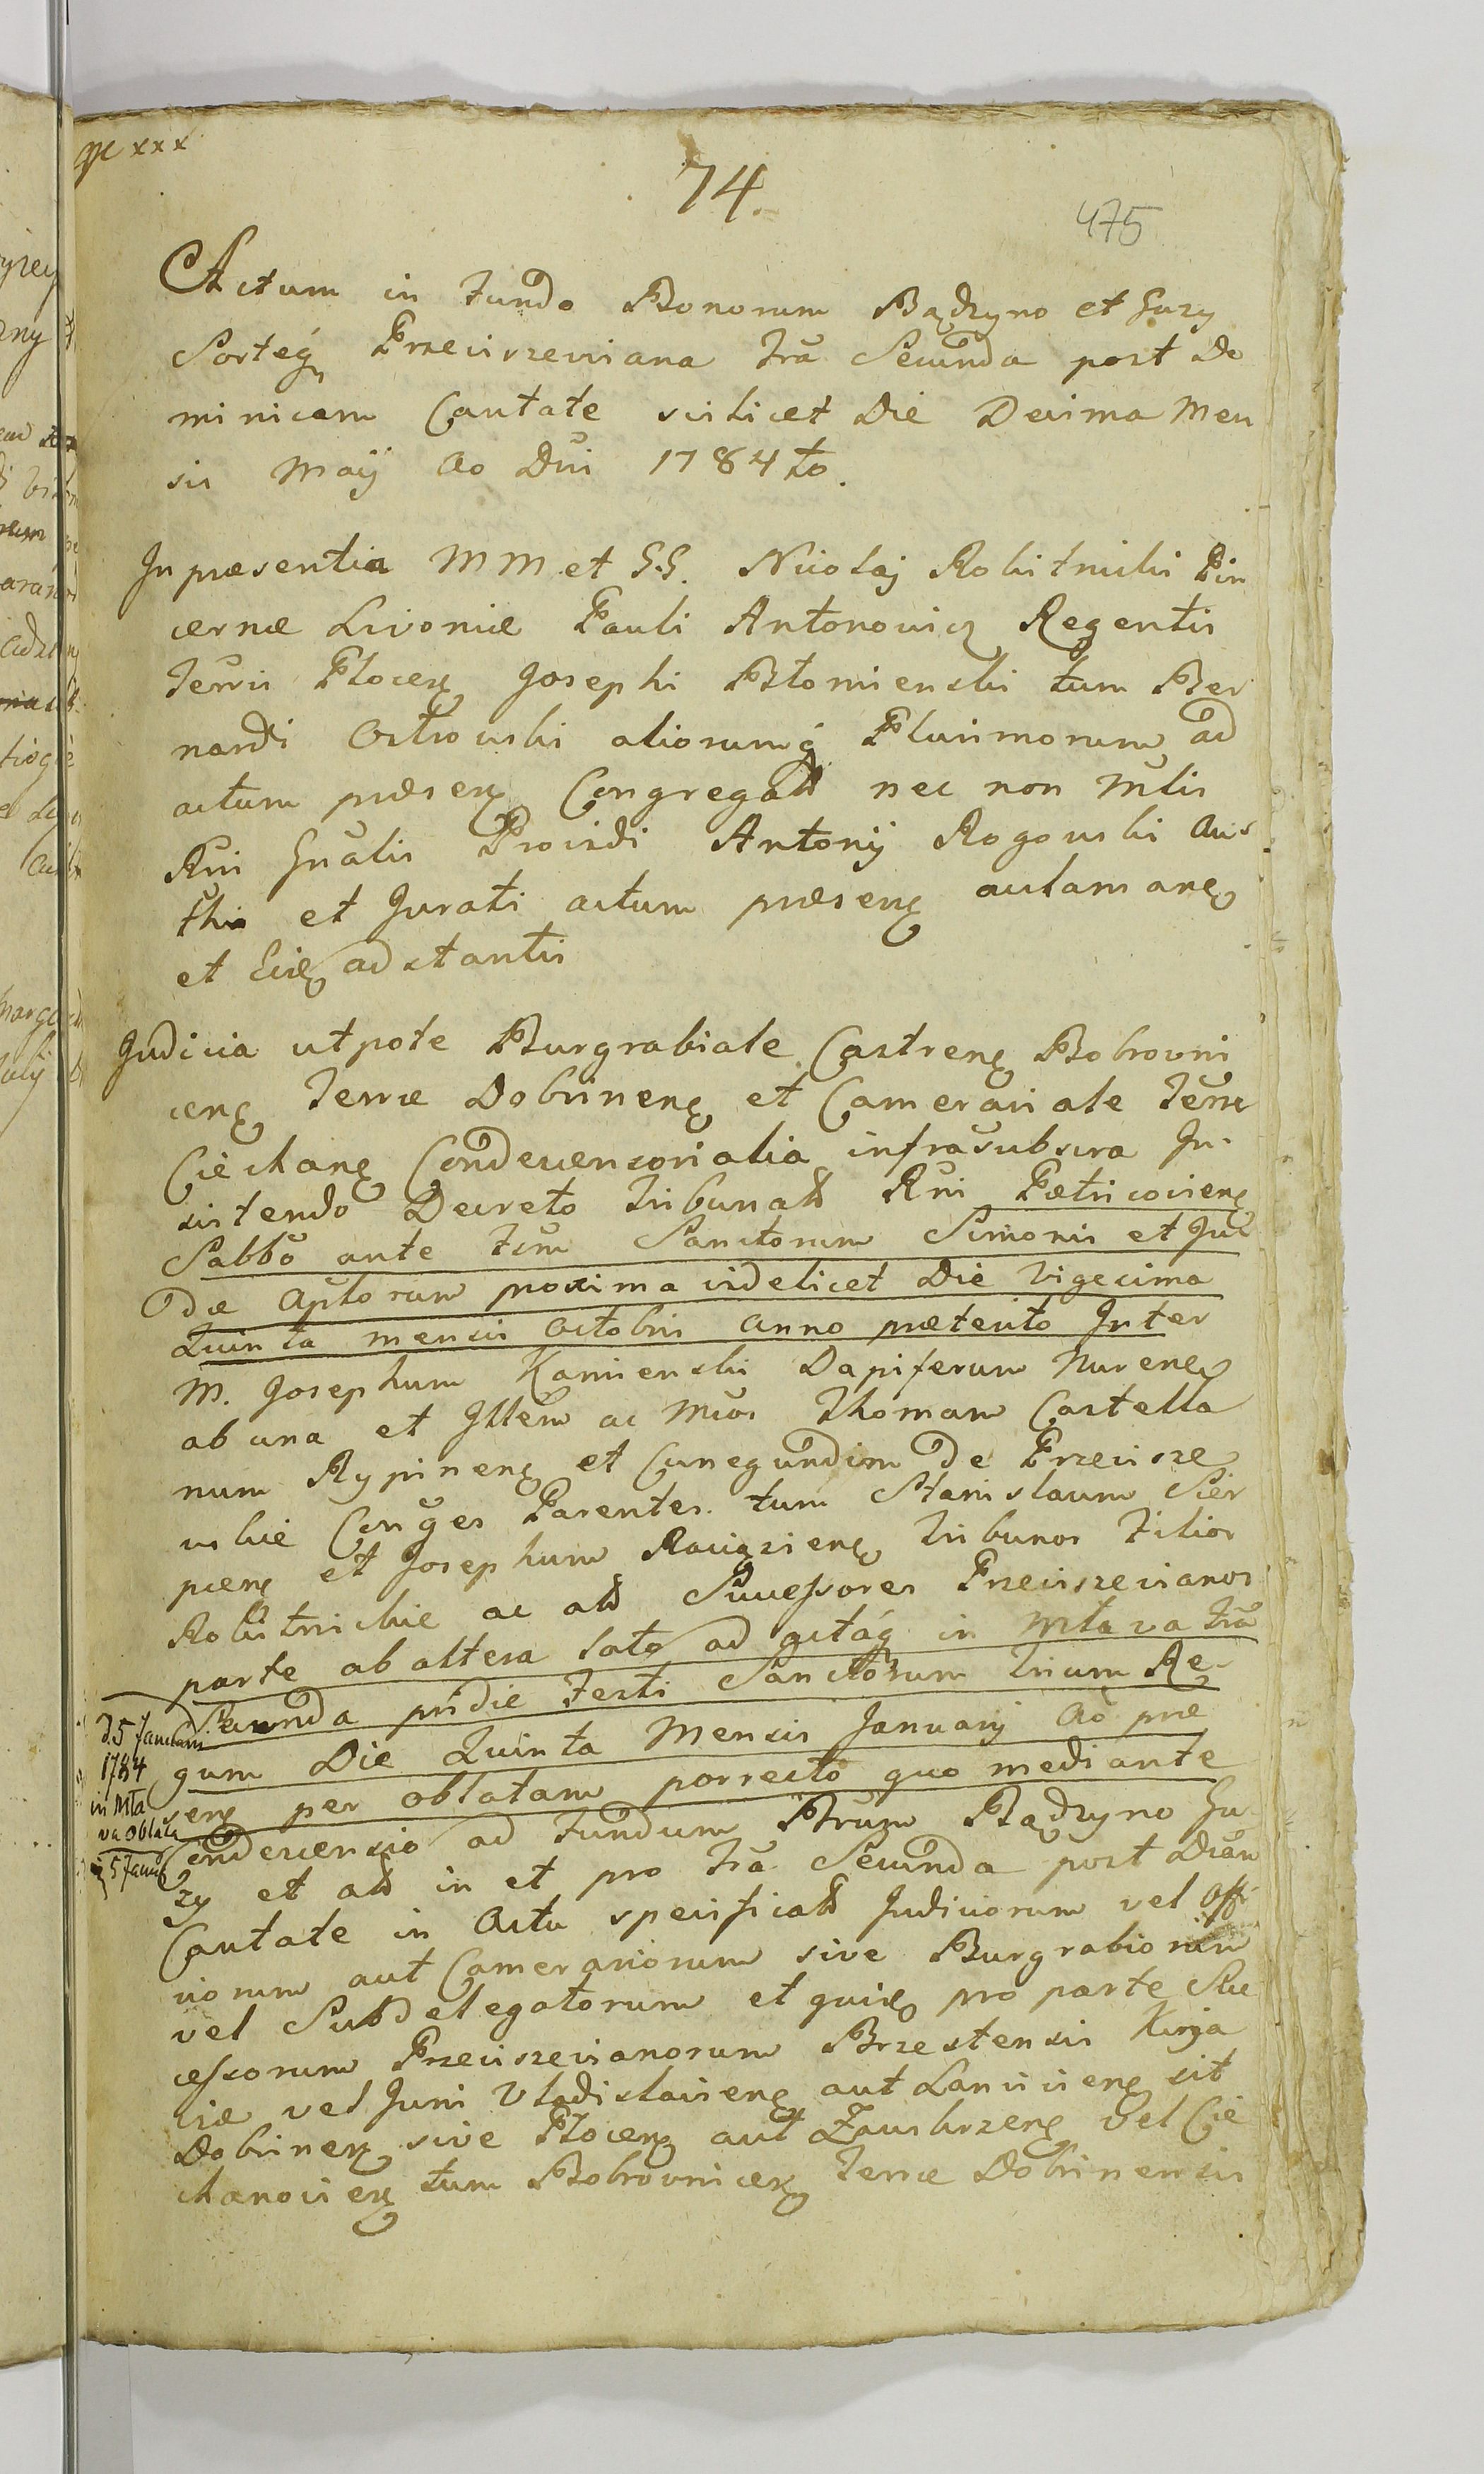 74.
475
Actum in Fundo Bonorum Bądzyno et Guzy
Sorteq Przeciszeviana Fra Secunda post Do
minicam Cantate scilicet Die Decima Men
sis Maij Ao Dni 1784 to.
In præsentia MM et G.G. Nicolaj Robitnicki Pin
cernæ Livoniæ Pauli Antonowicz Regentis
Terris Plocen Josephi Błomienski tum Ber
nardi Ostrowski aliorumq Plurimorum ad
actum præsen Congregat nec non Mlis
Rni Gnalis Providi Antonij Rogowski Au
thi et Jurati actum præsen aclaman
et Eide adstantis
Judicia utpote Burgrabiale Castren Bobrovni
cen Terræ Dobrinen et Camerariale Terræ
Ciechan Condescensorialia infrasubscra In
sistendo Decreto Tribunal Rni Petricovien
Sabbo ante Fsm Sanctorum Simonis et Ju
dæ Aplorum proxima videlicet Die Vigesima
Quinta mensis Octobris anno præterito Inter
M. Josephum Kamienski Dapiferum Nuren
ab una et Illem ac Mcos Thomam Castella
num Rypinen et Cunegundim De Przecisze
wskie Conges Parentes tum Stanislaum Sier
pcen et Josephum Raciązien Tribunos Filios
Robitnickie ac al Successores Przeciszevianos
parte ab altera lato ad actaq in Mlava Fra
Secunda pridie Festi Sanctorum Trium Re
gum Die Quinta Mensis January Ao præ
sen per oblatam porrecto quo mediante
Condescensio ad Fundum Brum Bądzyno Gu
zy et al in et pro Fra Secunda post Dcam
Cantate in Actu specificat Judiciorum vel Offi
ciorum aut Camerariorum sive Burgrabiorum
vel Subdelegatorum et quide pro parte Suc
cessorum Przeciszevianorum Brzestensis Kuja
viæ vel Juni Vladislavien aut Lancicien sit
Dobrinen sive Plocen aut Zawkrzen vel Cie
chanovien tum Bobrovnicen Terræ Dobrinensis
d. 5 Januarii
1784
in Mla
va Oblata
5 Janu